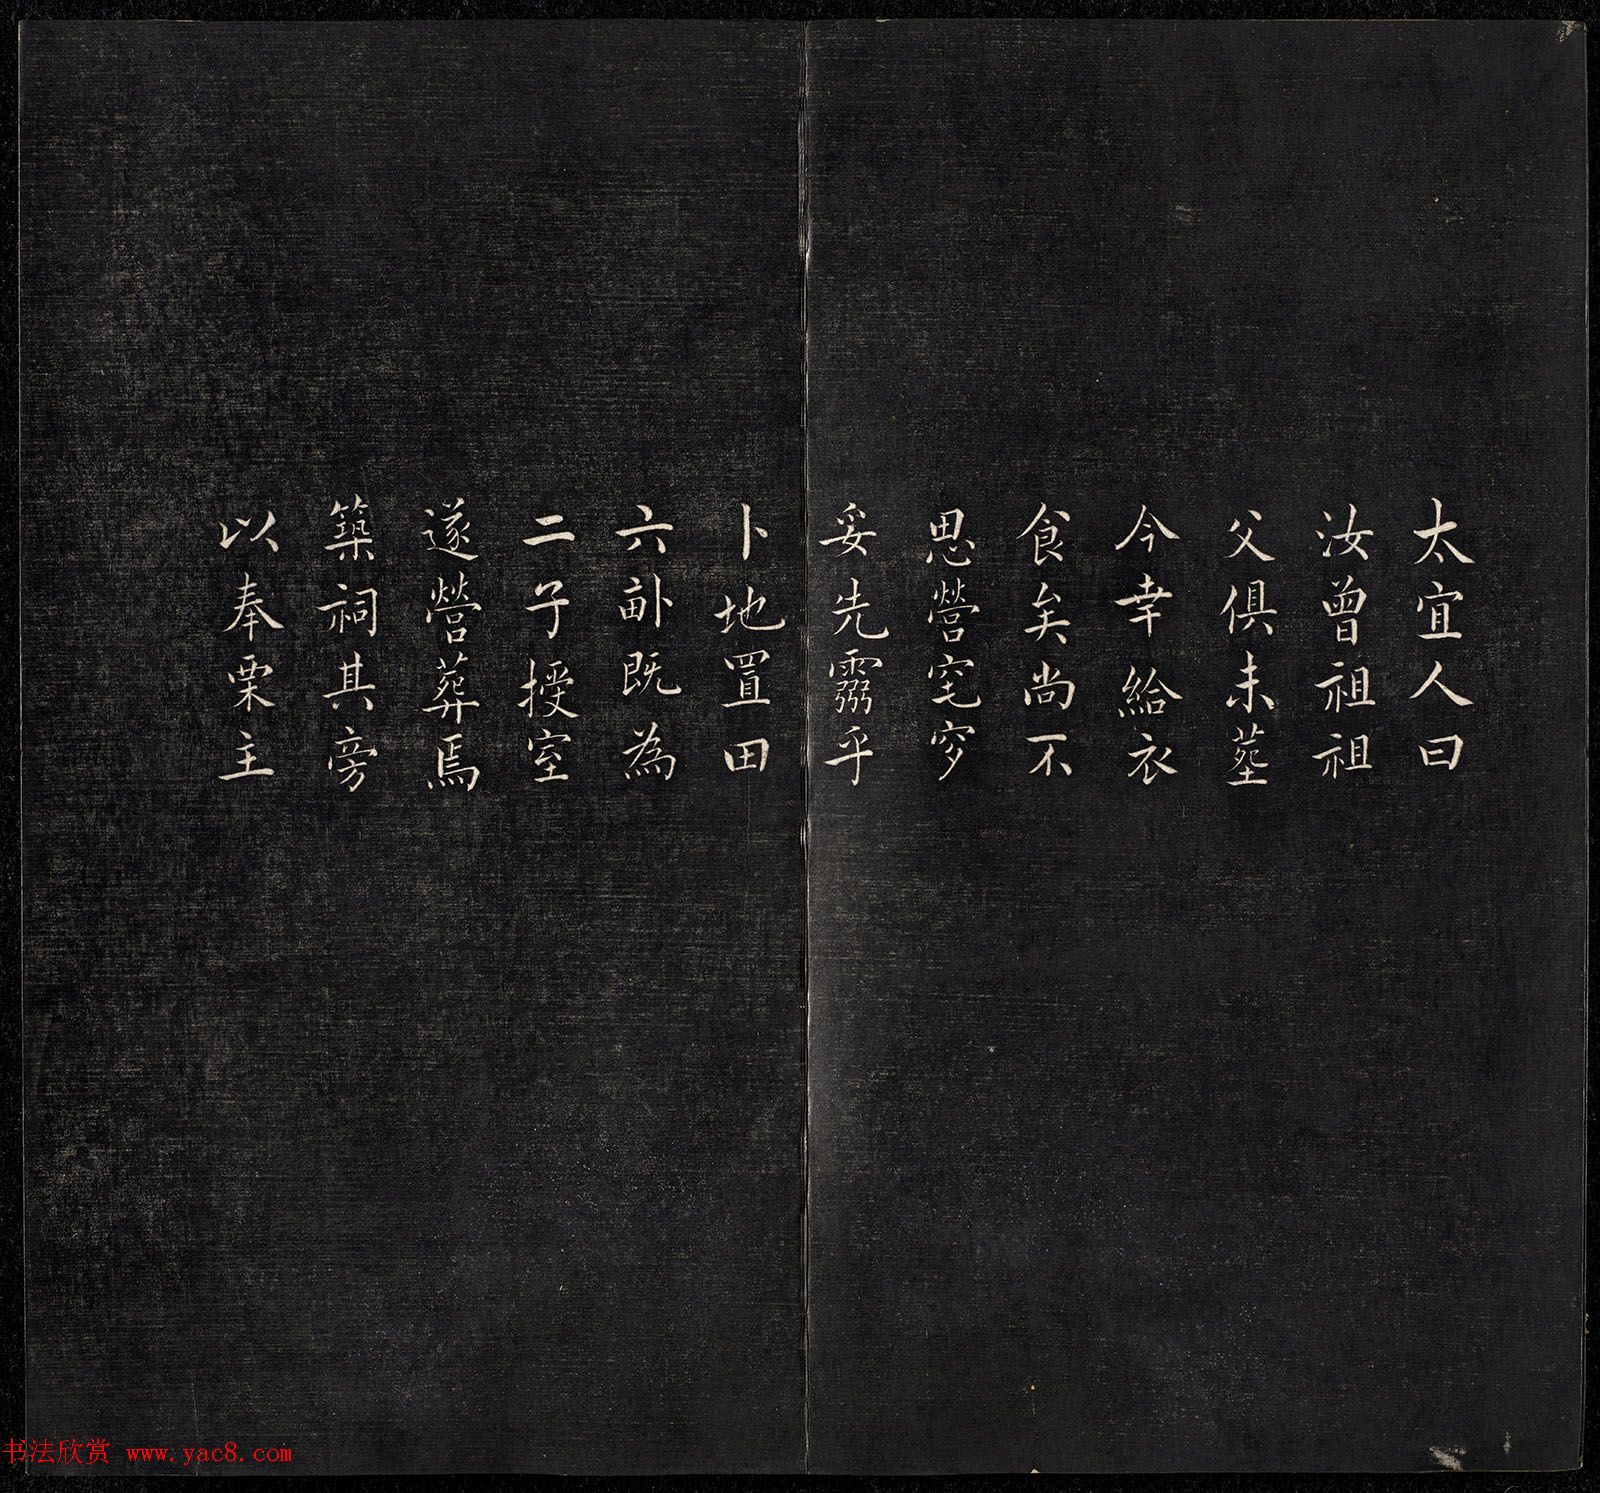 太宜人曰
汝曾祖祖
父俱未塟
今幸給衣
食矣尚不
思營窀穸
妥先靈乎
卜地置田
六畝既為
二子授室
遂營葬焉
築祠其旁
以奉栗主
书法欣赏 www.yac8.com